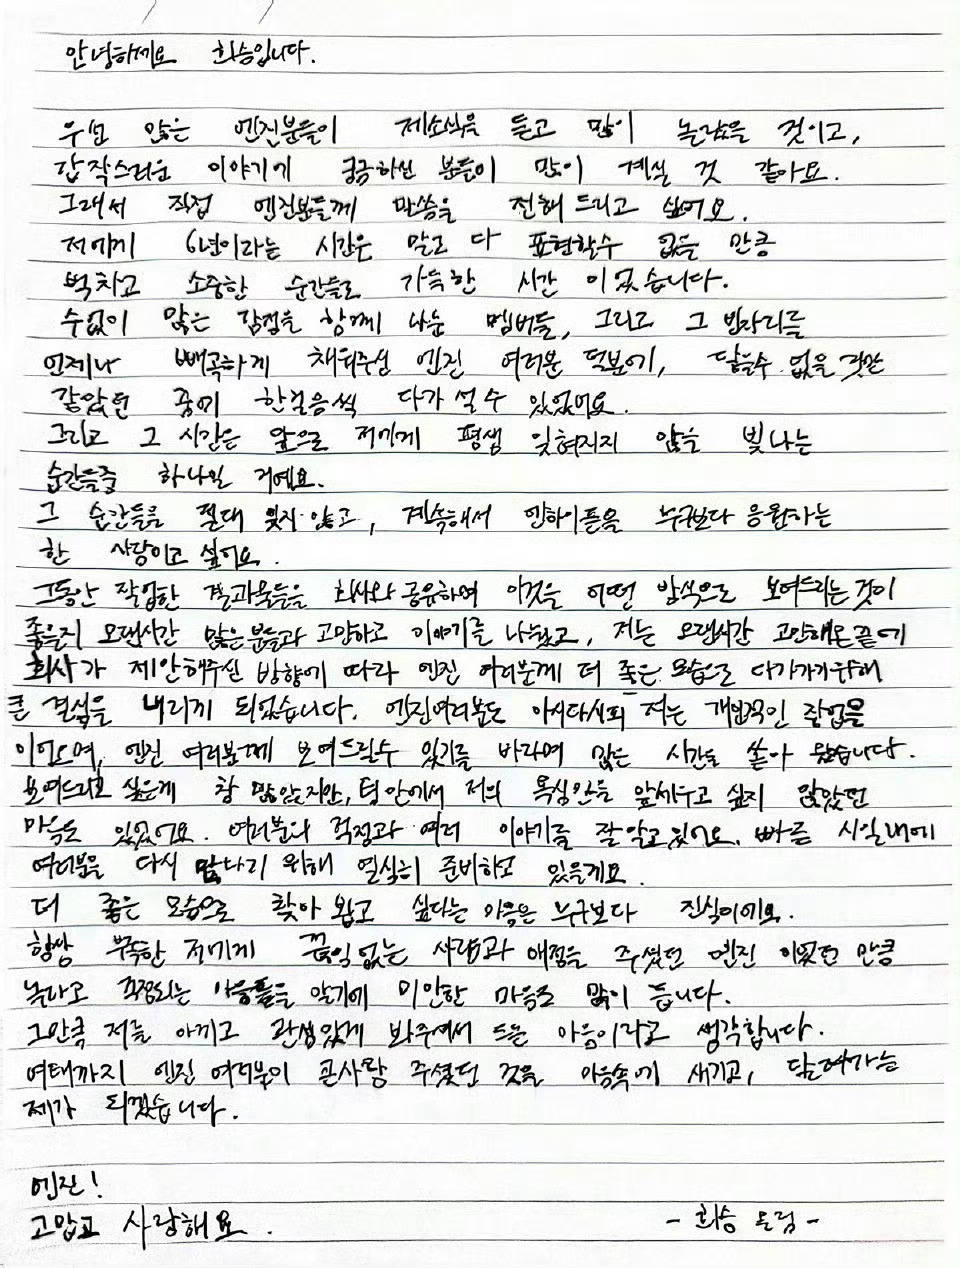 안녕하세요 희승입니다.
우선 많은 엔진분들이 제소식을 듣고 많이 놀랐을 것이고,
갑작스러운 이야기에 궁금하신 분들이 많이 계실 것 같아요.
그래서 직접 엔진분들께 말씀을 전해 드리고 싶어요.
저에게 6년이라는 시간은 말로 다 표현할수 없을 만큼
벅차고 소중한 순간들로 가득한 시간 이었습니다.
수없이 많은 감정을 함께 나눈 멤버들, 그리고 그 빈자리를
언제나 빼곡하게 채워주신 엔진 여러분 덕분에, 닿을수 없을 것만
같았던 중에 한걸음씩 다가 설 수 있었어요.
그리고 그 시간은 앞으로 저에게 평생 잊혀지지 않을 빛나는
순간들중 하나일 거예요.
그 순간들을 절대 잊지 않고, 계속해서 엔하이픈을 누구보다 응원하는
한 사람이고 싶어요.
그동안 작업한 결과물들을 회사와 공유하며 이것을 어떤 방식으로 보여드리는 것이
좋을지 오랜시간 많은 분들과 고민하고 이야기를 나눴고, 저는 오랜시간 고민해온 끝에
회사가 제안해주신 방향에 따라 엔진 여러분께 더 좋은 모습으로 다가가기위해
큰 결심을 내리게 되었습니다. 엔진여러분도 아시다시피 저는 개인적인 작업을
이어오며, 엔진 여러분께 보여드릴수 있기를 바라며 많은 시간을 쏟아 왔습니다.
보여드리고 싶은게 참 많았지만, 팀 안에서 저의 욕심만을 앞세우고 싶지 않았던
마음도 있었어요. 여러분의 걱정과 여러 이야기를 잘 알고 있어요. 빠른 시일내에
여러분을 다시 만나기 위해 열심히 준비하고 있을게요.
더 좋은 모습으로 찾아 뵙고 싶다는 마음은 누구보다 진심이에요.
항상 부족한 저에게 끊임없는 사랑과 애정을 주셨던 엔진 이었던 만큼
놀라고 걱정되는 마음들을 알기에 미안한 마음도 많이 듭니다.
그만큼 저를 아끼고 관심있게 봐주셔서 드는 마음이라고 생각합니다.
여태까지 엔진 여러분이 큰사랑 주셨던 것을 마음속에 새기고, 달려가는
제가 되겠습니다.
엔진!
고맙고 사랑해요. - 희승 드림 -